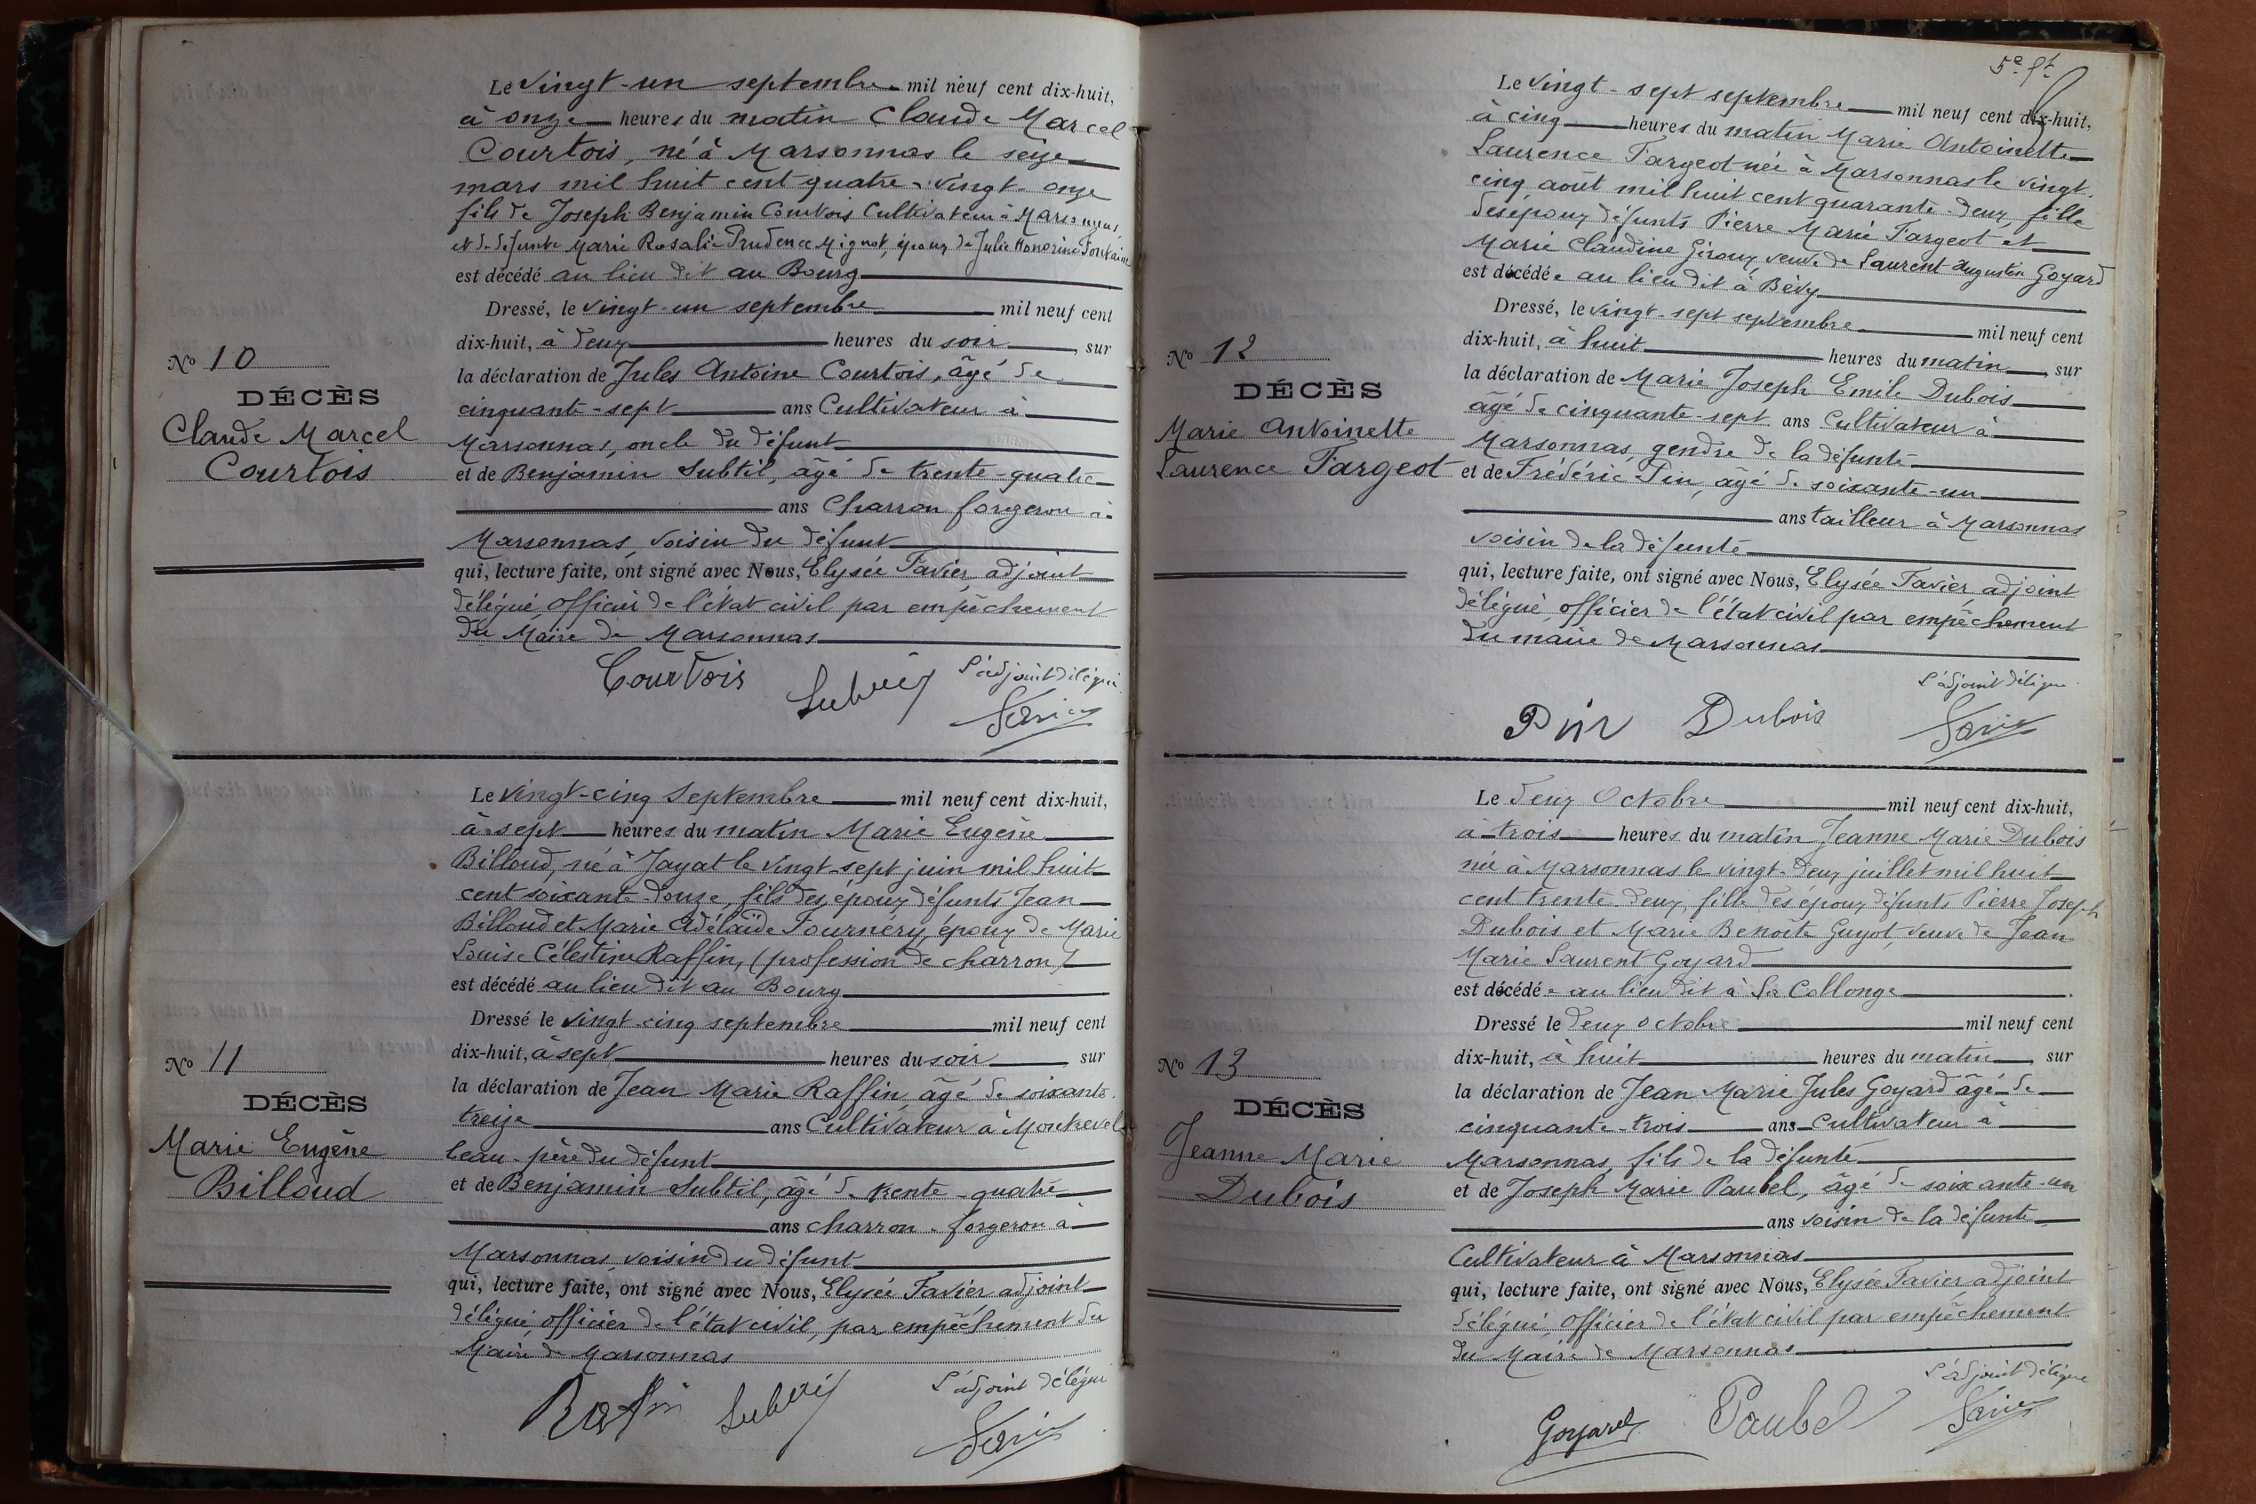 Le vingt-un septembre mil neuf cent dix-huit,
à onze heures du matin Claude Marcel
Courtois, né à Marsonnas le seize
mars mil huit cent quatre-vingt-onze
fils de Joseph Benjamin Courtois Cultivateur à Marsonnas,
et de défunte Marie Rosalie Prudence Mignot, époux de Julie Honorine Fontaine
est décédé au lieu dit au Bourg
Dressé, le vingt-un septembre mil neuf cent
dix-huit, à deux heures du soir, sur
la déclaration de Jules Antoine Courtois, âgé de
cinquante-sept ans Cultivateur à
Marsonnas, oncle du défunt
et de Benjamin Subtil, âgé de trente-quatre
ans Charron forgeron à
Marsonnas, voisin du défunt
qui, lecture faite, ont signé avec Nous, Elysée Favier, adjoint
délégué officier de l'état civil par empêchement
du Maire de Marsonnas
No 10
DÉCÈS
Claude Marcel
Courtois
Courtois Subtil L'adjoint délégué
Favier
Le vingt-cinq Septembre mil neuf cent dix-huit,
à sept heures du matin Marie Eugène
Billoud, né à Jayat le vingt-sept juin mil huit
cent soixante-douze, fils des époux défunts Jean
Billoud et Marie Adélaïde Fournéry, époux de Marie
Louise Célestine Raffin, (profession de charron)
est décédé au lieu dit au Bourg
Dressé le vingt-cinq septembre mil neuf cent
dix-huit, à sept heures du soir sur
la déclaration de Jean Marie Raffin, âgé de soixante-
treize ans Cultivateur à Montrevel
beau-père du défunt
et de Benjamin Subtil, âgé de trente-quatre
ans charron-forgeron à
Marsonnas, voisin du défunt
qui, lecture faite, ont signé avec Nous, Elysée Favier adjoint
délégué officier de l'état civil, par empêchement du
Maire de Marsonnas
No 11
DÉCÈS
Marie Eugène
Billoud
Raffin Subtil L'adjoint délégué
Favier
5e ft
Le vingt-sept septembre mil neuf cent dix-huit,
à cinq heures du matin Marie Antoinette
Laurence Fargeot née à Marsonnas le vingt-
cinq août mil huit cent quarante-deux, fille
des époux défunts Pierre Marie Fargeot et
Marie Claudine Giroux, veuve de Laurent Augustin Goyard
est décédée au lieu dit à Bévy
Dressé, le vingt-sept septembre mil neuf cent
dix-huit, à huit heures du matin, sur
la déclaration de Marie Joseph Emile Dubois
âgé de cinquante-sept ans Cultivateur à
Marsonnas, gendre de la défunte
et de Frédéric Pin, âgé de soixante-un
ans tailleur à Marsonnas
voisin de la défunte
qui, lecture faite, ont signé avec Nous, Elysée Favier, adjoint
délégué officier de l'état civil par empêchement
du maire de Marsonnas
No 12
DÉCÈS
Marie Antoinette
Laurence Fargeot
Pin Dubois L'adjoint délégué
Favier
Le deux Octobre mil neuf cent dix-huit,
à trois heures du matin Jeanne Marie Dubois
née à Marsonnas le vingt-deux juillet mil huit
cent trente deux, fille des époux défunts Pierre Joseph
Dubois et Marie Benoîte Guyot, veuve de Jean
Marie Laurent Goyard
est décédée au lieu dit à La Collonge
Dressé le deux octobre mil neuf cent
dix-huit, à huit heures du matin, sur
la déclaration de Jean Marie Jules Goyard âgé de
cinquante-trois ans Cultivateur à
Marsonnas, fils de la défunte
et de Joseph Marie Paubel, âgé de soixante-un
ans voisin de la défunte
Cultivateur à Marsonnas
qui, lecture faite, ont signé avec Nous, Elysée Favier, adjoint
délégué officier de l'état civil par empêchement
du Maire de Marsonnas
No 13
DÉCÈS
Jeanne Marie
Dubois
Goyard Paubel L'adjoint délégué
Favier